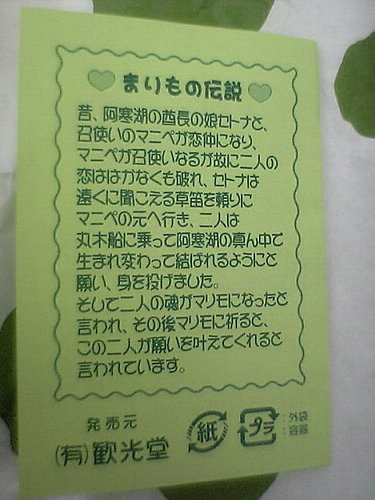 まりもの伝説
昔、阿寒湖の酋長の娘セトナと、
召使いのマニペが恋仲になり、
マニペが召使いなるが故に二人の
恋ははかなくも破れ、セトナは
遠くに聞こえる草笛を頼りに
マニペの元へ行き、二人は
丸木船に乗って阿寒湖の真ん中で
生まれ変わって結ばれるようにと
願い、身を投げました。
そして二人の魂がマリモになったと
言われ、その後マリモに祈ると、
この二人が願いを叶えてくれると
言われています。
発売元
(有)歓光堂
紙
プラ
:外袋
:容器